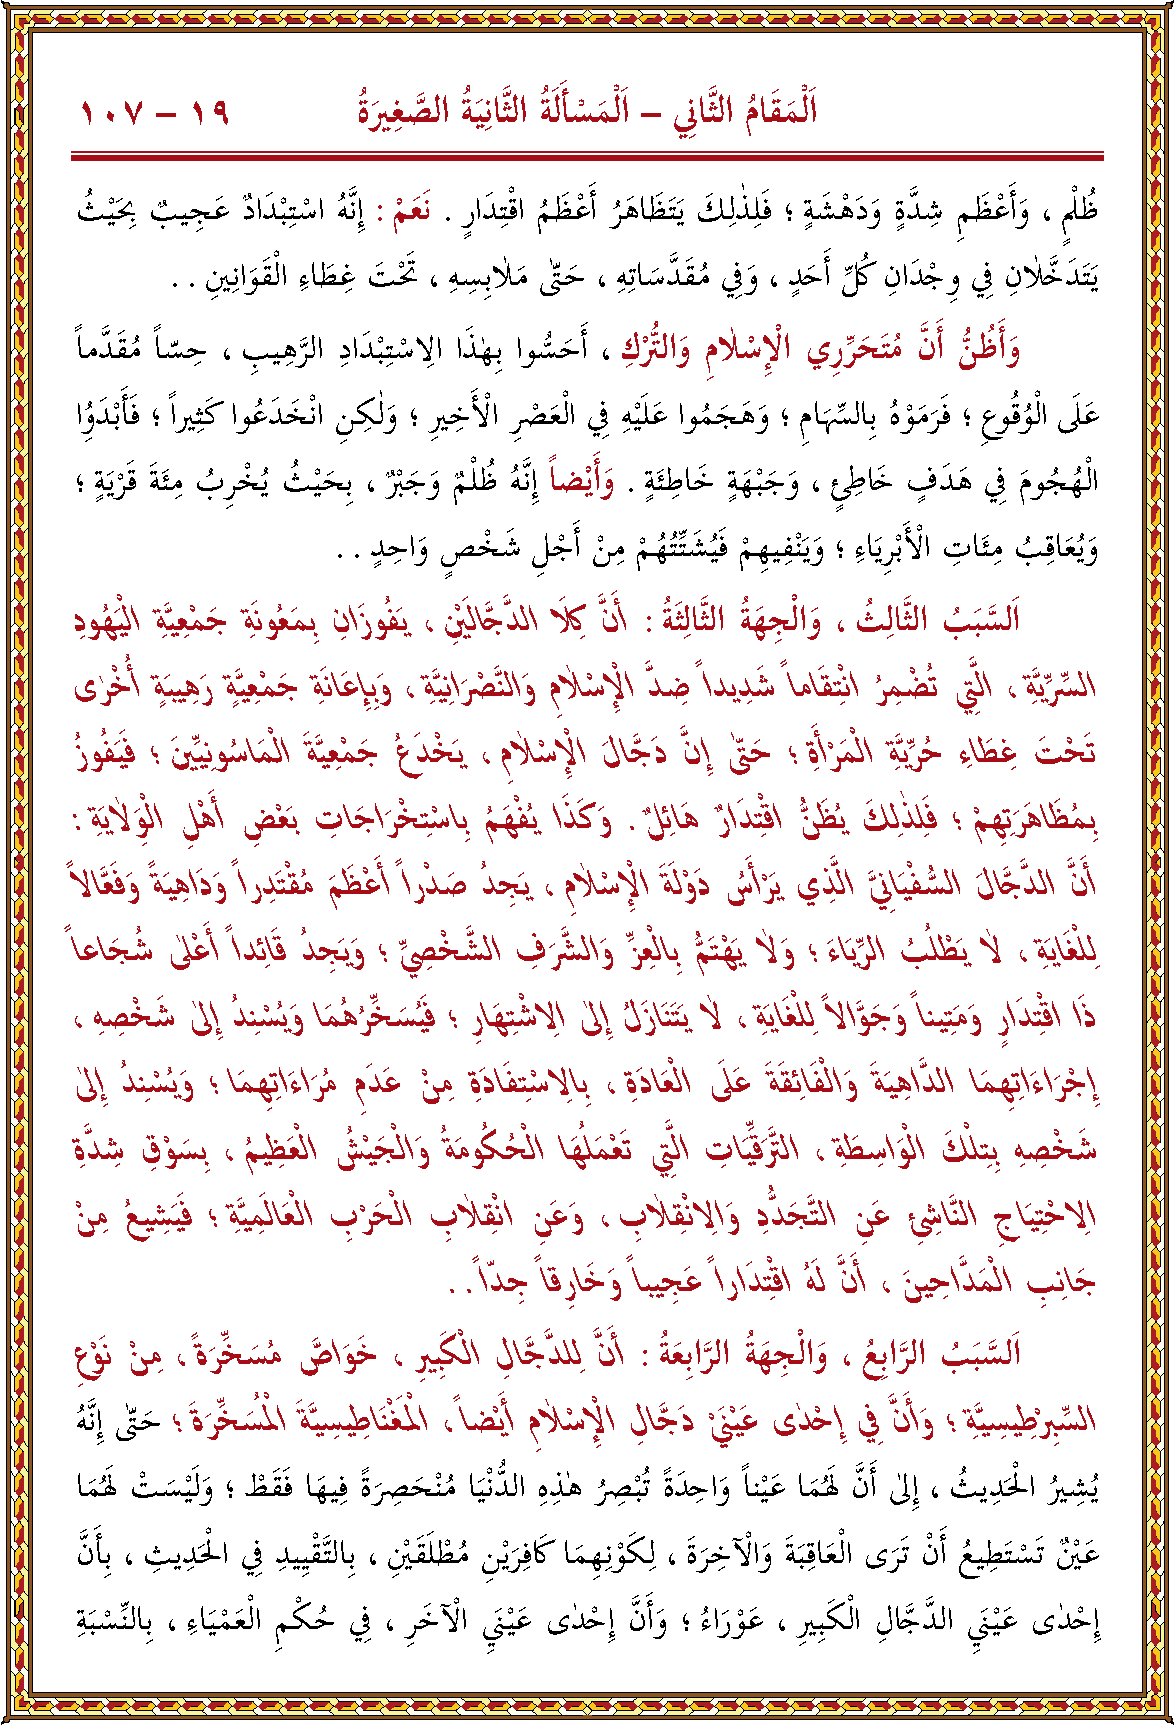 اَلْمَقَامُ الثَّانِي – اَلْمَسْأَلَةُ الثَّانِيَةُ الصَّغِيرَةُ ١٩ – ١٠٧
ظُلْمٍ ، وَأَعْظَمِ شِدَّةٍ وَدَهْشَةٍ ؛ فَلِذٰلِكَ يَتَظَاهَرُ أَعْظَمُ اقْتِدَارٍ . نَعَمْ : إِنَّهُ اسْتِبْدَادٌ عَجِيبٌ بِحَيْثُ
يَتَدَخَّلاٰنِ فِي وِجْدَانِ كُلِّ أَحَدٍ ، وَفِي مُقَدَّسَاتِهِ ، حَتّٰى مَلاٰبِسِهِ ، تَحْتَ غِطَاءِ الْقَوَانِينِ . .
وَأَظُنُّ أَنَّ مُتَحَرِّرِي الْإِسْلاٰمِ وَالتُّرْكِ ، أَحَسُّوا بِهٰذَا الِاسْتِبْدَادِ الرَّهِيبِ ، حِسّاً مُقَدَّماً
عَلَى الْوُقُوعِ ؛ فَرَمَوْهُ بِالسِّهَامِ ؛ وَهَجَمُوا عَلَيْهِ فِي الْعَصْرِ الْأَخِيرِ ؛ وَلٰكِنِ انْخَدَعُوا كَثِيراً ؛ فَأَبْدَؤُا
الْهُجُومَ فِي هَدَفٍ خَاطِئٍ ، وَجَبْهَةٍ خَاطِئَةٍ . وَأَيْضاً إِنَّهُ ظُلْمٌ وَجَبْرٌ ، بِحَيْثُ يُخْرِبُ مِئَةَ قَرْيَةٍ ؛
وَيُعَاقِبُ مِئَاتِ الْأَبْرِيَاءِ ؛ وَيَنْفِيهِمْ فَيُشَتِّتُهُمْ مِنْ أَجْلِ شَخْصٍ وَاحِدٍ . .
اَلسَّبَبُ الثَّالِثُ ، وَالْجِهَةُ الثَّالِثَةُ : أَنَّ كِلَا الدَّجَّالَيْنِ ، يَفُوزَانِ بِمَعُونَةِ جَمْعِيَّةِ الْيَهُودِ
السِّرِّيَّةِ ، الَّتِي تُضْمِرُ انْتِقَاماً شَدِيداً ضِدَّ الْإِسْلاٰمِ وَالنَّصْرَانِيَّةِ ، وَبِإِعَانَةِ جَمْعِيَّةٍ رَهِيبَةٍ أُخْرٰى
تَحْتَ غِطَاءِ حُرِّيَّةِ الْمَرْأَةِ ؛ حَتّٰى إِنَّ دَجَّالَ الْإِسْلاٰمِ ، يَخْدَعُ جَمْعِيَّةَ الْمَاسُونِيِّينَ ؛ فَيَفُوزُ
بِمُظَاهَرَتِهِمْ ؛ فَلِذٰلِكَ يُظَنُّ اقْتِدَارٌ هَائِلٌ . وَكَذَا يُفْهَمُ بِاسْتِخْرَاجَاتِ بَعْضِ أَهْلِ الْوِلاٰيَةِ :
أَنَّ الدَّجَّالَ السُّفْيَانِيَّ الَّذِي يَرْأَسُ دَوْلَةَ الْإِسْلاٰمِ ، يَجِدُ صَدْراً أَعْظَمَ مُقْتَدِراً وَدَاهِيَةً وَفَعَّالاً
لِلْغَايَةِ ، لاٰ يَطْلُبُ الرِّيَاءَ ؛ وَلاٰ يَهْتَمُّ بِالْعِزِّ وَالشَّرَفِ الشَّخْصِيِّ ؛ وَيَجِدُ قَائِداً أَعْلٰى شُجَاعاً
ذَا اقْتِدَارٍ وَمَتِيناً وَجَوَّالاً لِلْغَايَةِ ، لاٰ يَتَنَازَلُ إِلَى الِاشْتِهَارِ ؛ فَيُسَخِّرُهُمَا وَيُسْنِدُ إِلٰى شَخْصِهِ ،
إِجْرَاءَاتِهِمَا الدَّاهِيَةَ وَالْفَائِقَةَ عَلَى الْعَادَةِ ، بِالِاسْتِفَادَةِ مِنْ عَدَمِ مُرَاءَاتِهِمَا ؛ وَيُسْنِدُ إِلٰى
شَخْصِهِ بِتِلْكَ الْوَاسِطَةِ ، التَّرَقِّيَاتِ الَّتِي تَعْمَلُهَا الْحُكُومَةُ وَالْجَيْشُ الْعَظِيمُ ، بِسَوْقِ شِدَّةِ
الِاحْتِيَاجِ النَّاشِئِ عَنِ التَّجَدُّدِ وَالِانْقِلاٰبِ ، وَعَنِ انْقِلاٰبِ الْحَرْبِ الْعَالَمِيَّةِ ؛ فَيَشِيعُ مِنْ
جَانِبِ الْمَدَّاحِينَ ، أَنَّ لَهُ اقْتِدَاراً عَجِيباً وَخَارِقاً جِدّاً . .
اَلسَّبَبُ الرَّابِعُ ، وَالْجِهَةُ الرَّابِعَةُ : أَنَّ لِلدَّجَّالِ الْكَبِيرِ ، خَوَاصَّ مُسَخِّرَةً ، مِنْ نَوْعِ
السِّبِرْطِيسِيَّةِ ؛ وَأَنَّ فِي إِحْدٰى عَيْنَيْ دَجَّالِ الْإِسْلاٰمِ أَيْضاً ، الْمَغْنَاطِيسِيَّةَ الْمُسَخِّرَةَ ؛ حَتّٰى إِنَّهُ
يُشِيرُ الْحَدِيثُ ، إِلٰى أَنَّ لَهُمَا عَيْناً وَاحِدَةً تُبْصِرُ هٰذِهِ الدُّنْيَا مُنْحَصِرَةً فِيهَا فَقَطْ ؛ وَلَيْسَتْ لَهُمَا
عَيْنٌ تَسْتَطِيعُ أَنْ تَرَى الْعَاقِبَةَ وَالْآخِرَةَ ، لِكَوْنِهِمَا كَافِرَيْنِ مُطْلَقَيْنِ ، بِالتَّقْيِيدِ فِي الْحَدِيثِ ، بِأَنَّ
إِحْدٰى عَيْنَيِ الدَّجَّالِ الْكَبِيرِ ، عَوْرَاءُ ؛ وَأَنَّ إِحْدٰى عَيْنَيِ الْآخَرِ ، فِي حُكْمِ الْعَمْيَاءِ ، بِالنِّسْبَةِ